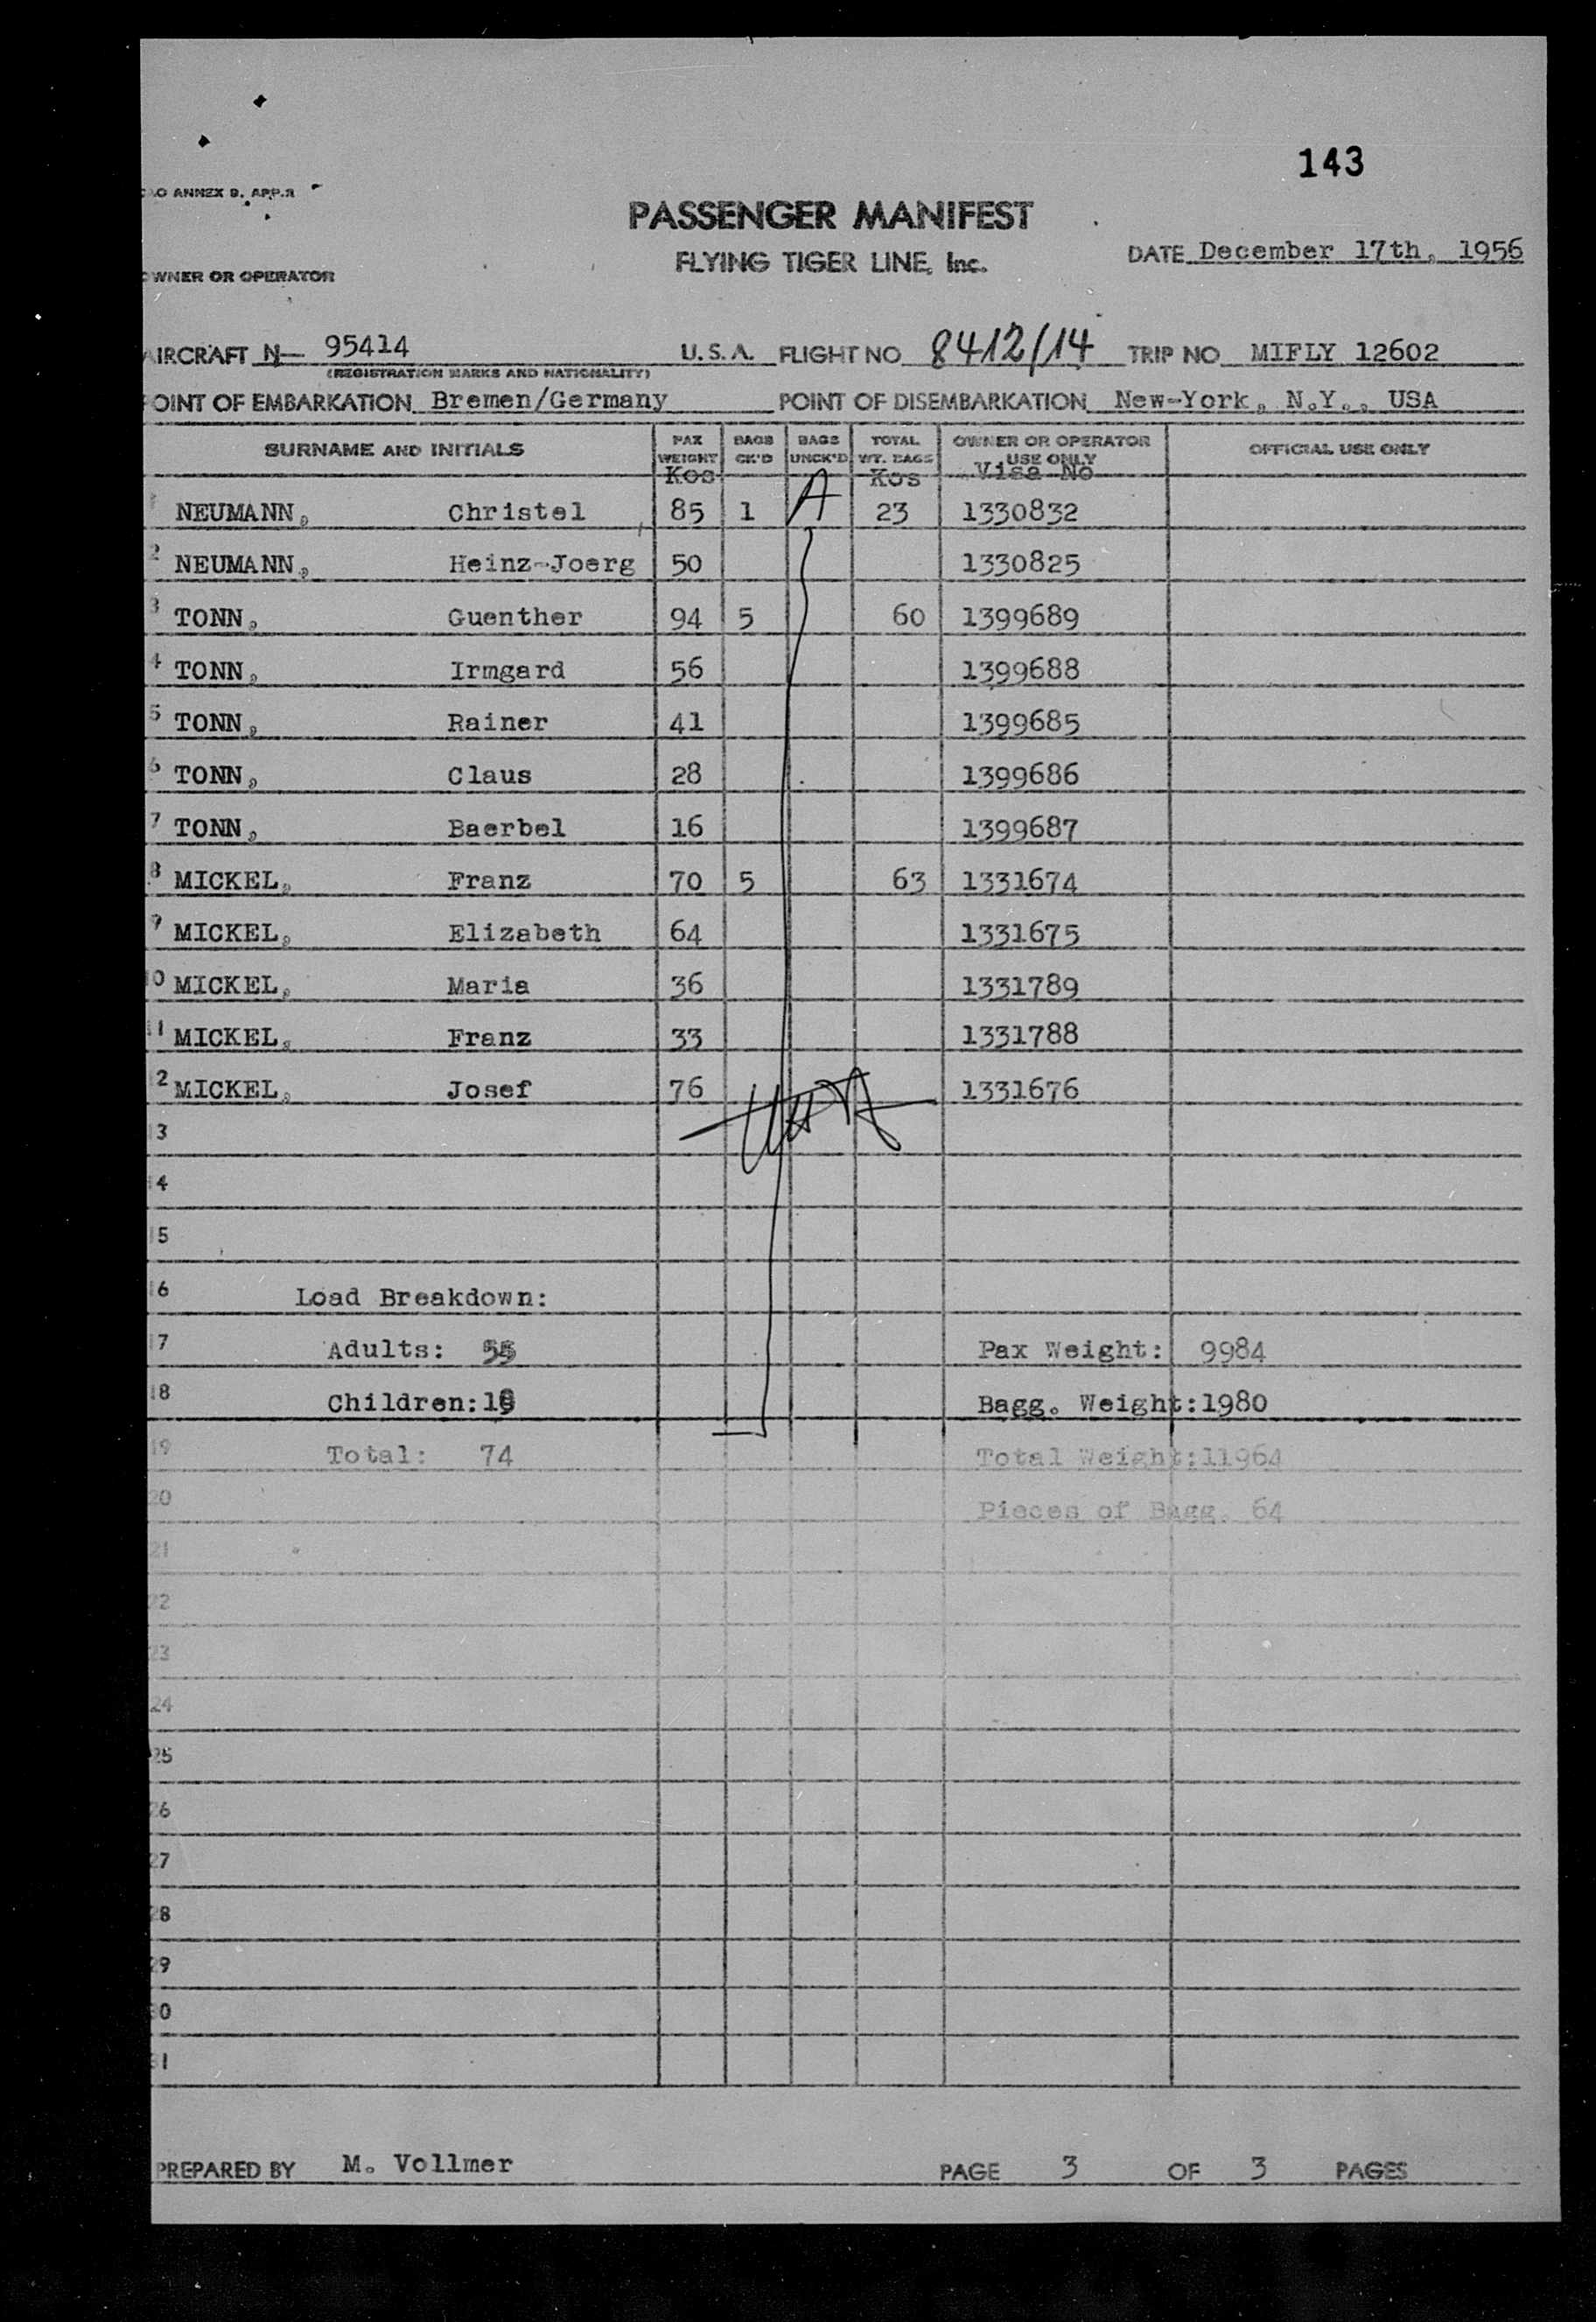 143
ANNEX 9, APP.
PASSENGER MANIFEST
FLYING TIGER LINE, Inc.
DATE December 17th, 1956
OWNER OR OPERATOR
AIRCRAFT N— 95414 U.S.A. FLIGHT NO 8412/14 TRIP NO MIFLY 12602
(REGISTRATION MARKS AND NATIONALITY)
POINT OF EMBARKATION Bremen/Germany POINT OF DISEMBARKATION New-York, N.Y., USA
SURNAME AND INITIALS PAX WEIGHT BAGS CK'D BAGS UNCK'D TOTAL WT. BAGS OWNER OR OPERATOR USE ONLY OFFICIAL USE ONLY
Kos Kos Visa No
1 NEUMANN, Christel 85 1 23 1330832
2 NEUMANN, Heinz-Joerg 50 1330825
3 TONN, Guenther 94 5 60 1399689
4 TONN, Irmgard 56 1399688
5 TONN, Rainer 41 1399685
6 TONN, Claus 28 1399686
7 TONN, Baerbel 16 1399687
8 MICKEL, Franz 70 5 63 1331674
9 MICKEL, Elizabeth 64 1331675
10 MICKEL, Maria 36 1331789
11 MICKEL, Franz 33 1331788
12 MICKEL, Josef 76 1331676
13
14
15
16 Load Breakdown:
17 Adults: 55 Pax Weight: 9984
18 Children:19 Bagg. Weight:1980
19 Total: 74 Total Weight:11964
20 Pieces of Bagg. 64
21
22
23
24
25
26
27
28
29
30
31
PREPARED BY M. Vollmer PAGE 3 OF 3 PAGES